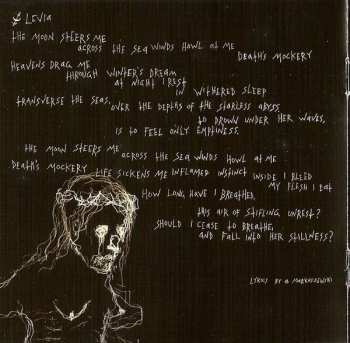 LEVIA
THE MOON STEERS ME
ACROSS THE SEA WINDS HOWL AT ME
DEATH'S MOCKERY
HEAVENS DRAG ME
THROUGH WINTER'S DREAM
AT NIGHT I REST
IN WITHERED SLEEP
TRANSVERSE THE SEAS,
OVER THE DEPTHS OF THE STARLESS ABYSS,
TO DROWN UNDER HER WAVES,
IS TO FEEL ONLY EMPTINESS.
THE MOON STEERS ME
ACROSS THE SEA WINDS HOWL AT ME
DEATH'S MOCKERY
LIFE SICKENS ME INFLAMED INSTINCT INSIDE I BLEED
MY FLESH I EAT
HOW LONG HAVE I BREATHED,
THIS AIR OF STIFLING UNREST?
SHOULD I CEASE TO BREATHE,
AND FALL INTO HER STILLNESS?
LYRICS BY